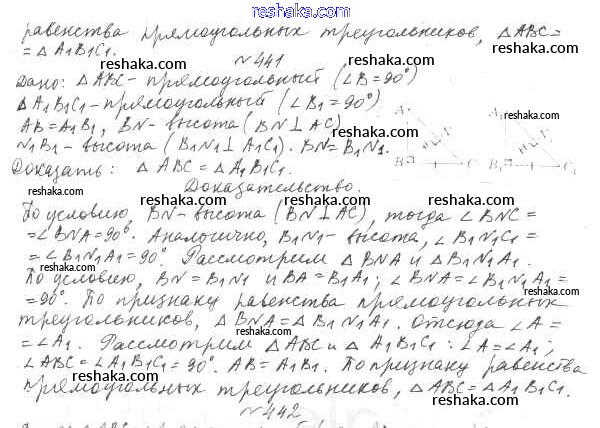 reshaka.com
равенства прямоугольных треугольников, △ABC=
= △A₁B₁C₁.
№441
Дано: △ABC - прямоугольный (∠B = 90°)
△A₁B₁C₁ - прямоугольный (∠B₁ = 90°)
AB = A₁B₁, BN - высота (BN ⊥ AC)
N₁B₁ - высота (B₁N₁ ⊥ A₁C₁). BN = B₁N₁.
Доказать: △ABC = △A₁B₁C₁.
Доказательство.
По условию, BN - высота (BN ⊥ AC), тогда ∠BNC =
= ∠BNA = 90°. Аналогично, B₁N₁ - высота, ∠B₁N₁C₁ =
= ∠B₁N₁A₁ = 90°. Рассмотрим △BNA и △B₁N₁A₁.
По условию, BN = B₁N₁ и BA = B₁A₁; ∠BNA = ∠B₁N₁A₁ =
= 90°. По признаку равенства прямоугольных
треугольников, △BNA = △B₁N₁A₁. Отсюда ∠A =
= ∠A₁. Рассмотрим △ABC и △A₁B₁C₁: ∠A = ∠A₁;
∠ABC = ∠A₁B₁C₁ = 90°. AB = A₁B₁. По признаку равенства
прямоугольных треугольников, △ABC = △A₁B₁C₁.
№442